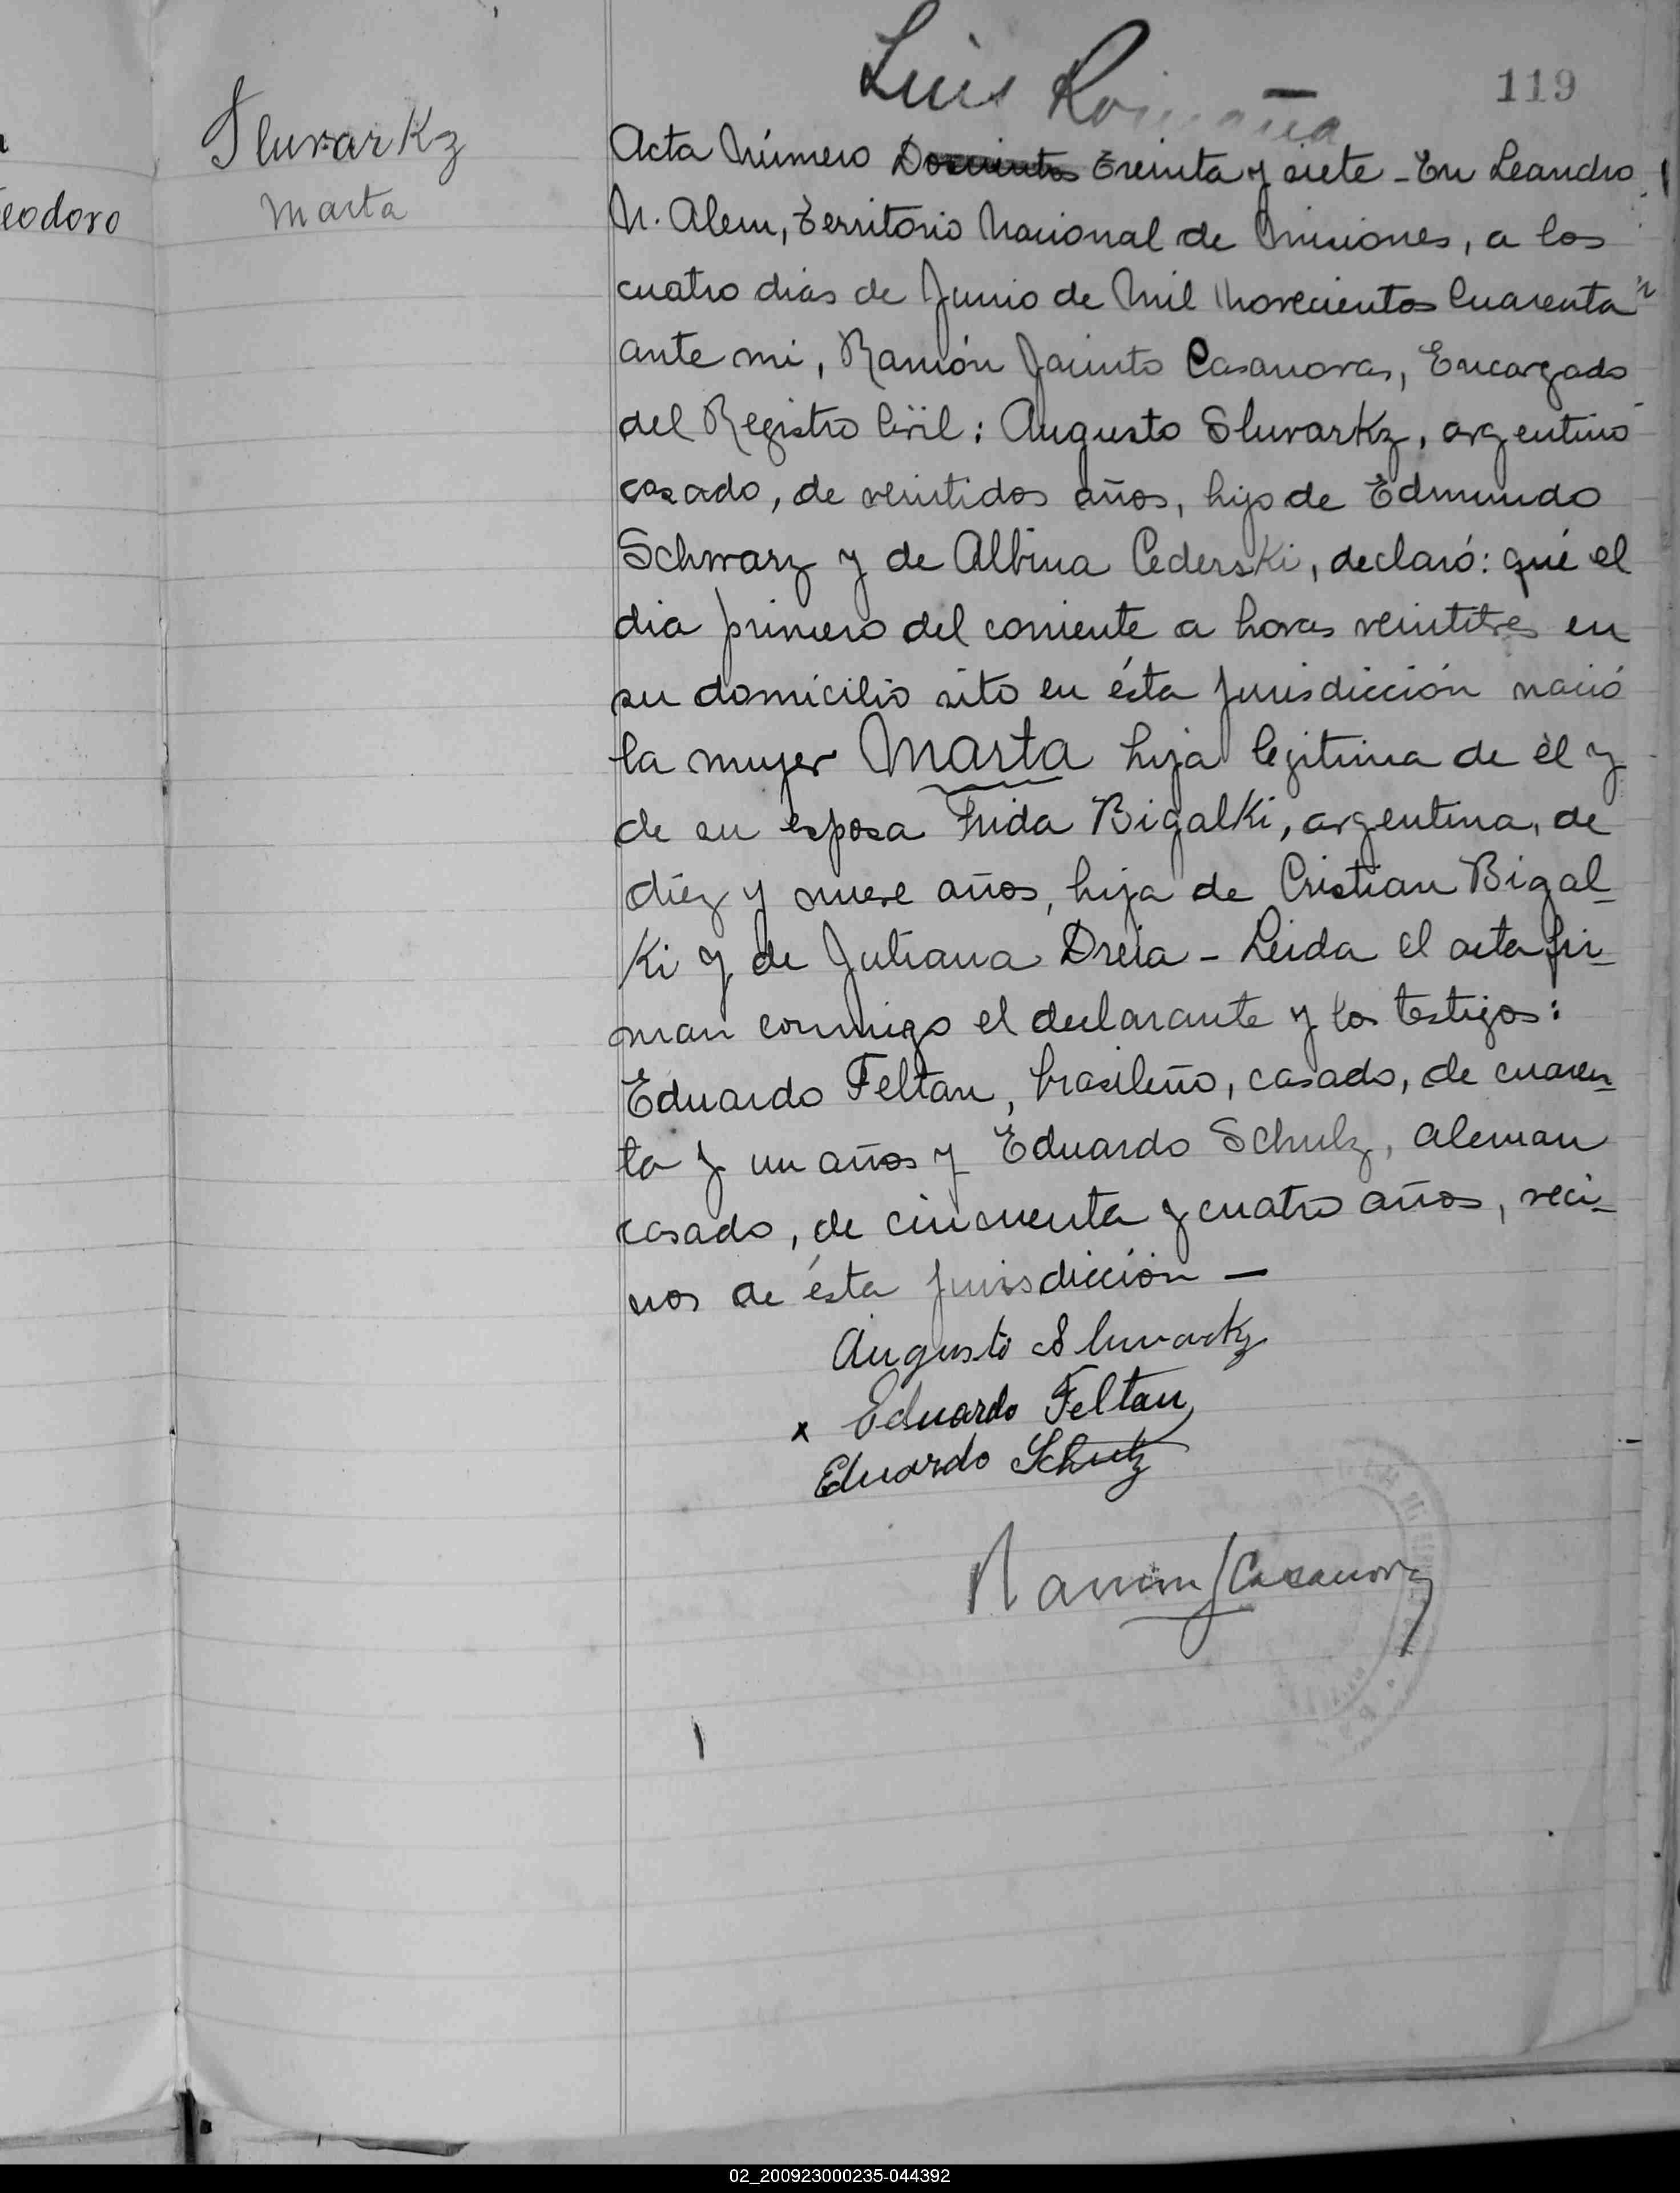 Luis Romaña
119
Sluvarkz
Marta
eodoro
Acta Número Doscientos Treinta y siete - En Leandro
N. Alem, Territorio Nacional de Misiones, a los
cuatro dias de Junio de Mil Novecientos Cuarenta
ante mi, Ramón Jacinto Casanova, Encargado
del Registro Civil: Augusto Sluvarkz, argentino
casado, de veintidos años, hijo de Edmundo
Schwarz y de Albina Cederski, declaró: qué el
dia primero del corriente a horas veintitres en
su domicilio sito en ésta Jurisdicción nació
la mujer Marta hija legitima de él y
de su esposa Frida Bigalki, argentina, de
diéz y nueve años, hija de Cristian Bigal-
Ki y de Juliana Dreia - Leida el acta fir-
man conmigo el declarante y los testigos:
Eduardo Feltan, brasileño, casado, de cuaren-
ta y un años y Eduardo Schulz, aleman
casado, de cincuenta y cuatro años, veci-
nos de ésta Jurisdicción —
Augusto Sluvarkz
x Eduardo Feltan
Eduardo Schulz
Ramon J Casanova
02_200923000235-044392